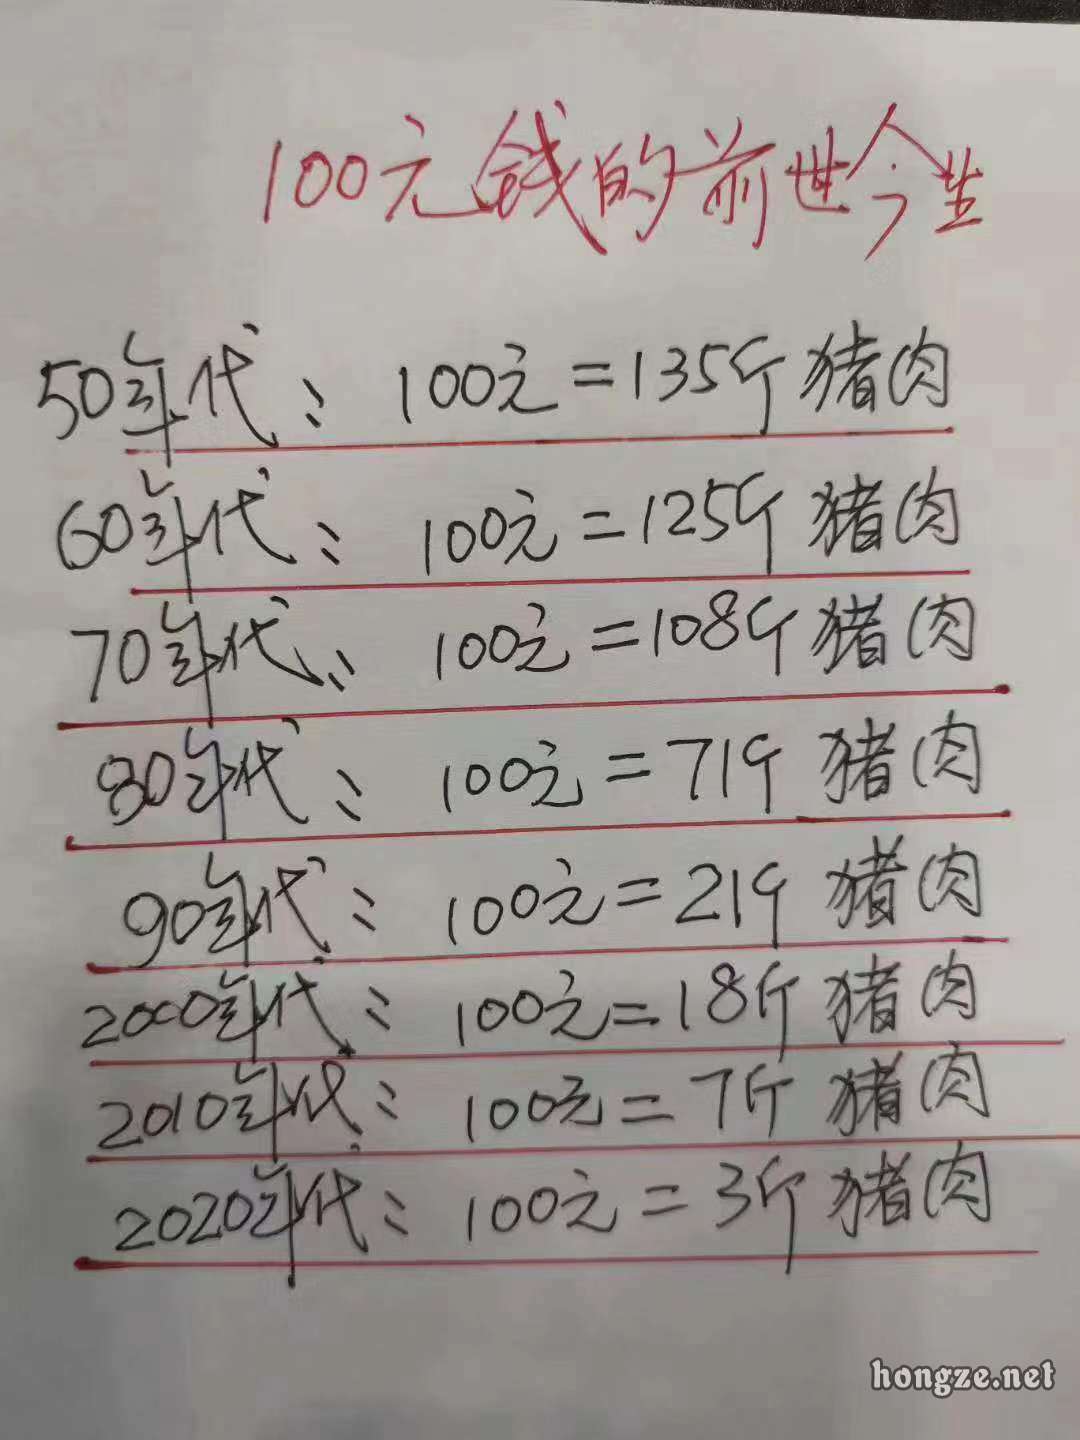 100元钱的前世今生
50年代: 100元=135斤猪肉
60年代: 100元=125斤猪肉
70年代: 100元=108斤猪肉
80年代: 100元=71斤猪肉
90年代: 100元=21斤猪肉
2000年代: 100元=18斤猪肉
2010年代: 100元=7斤猪肉
2020年代: 100元=3斤猪肉
hongze.net